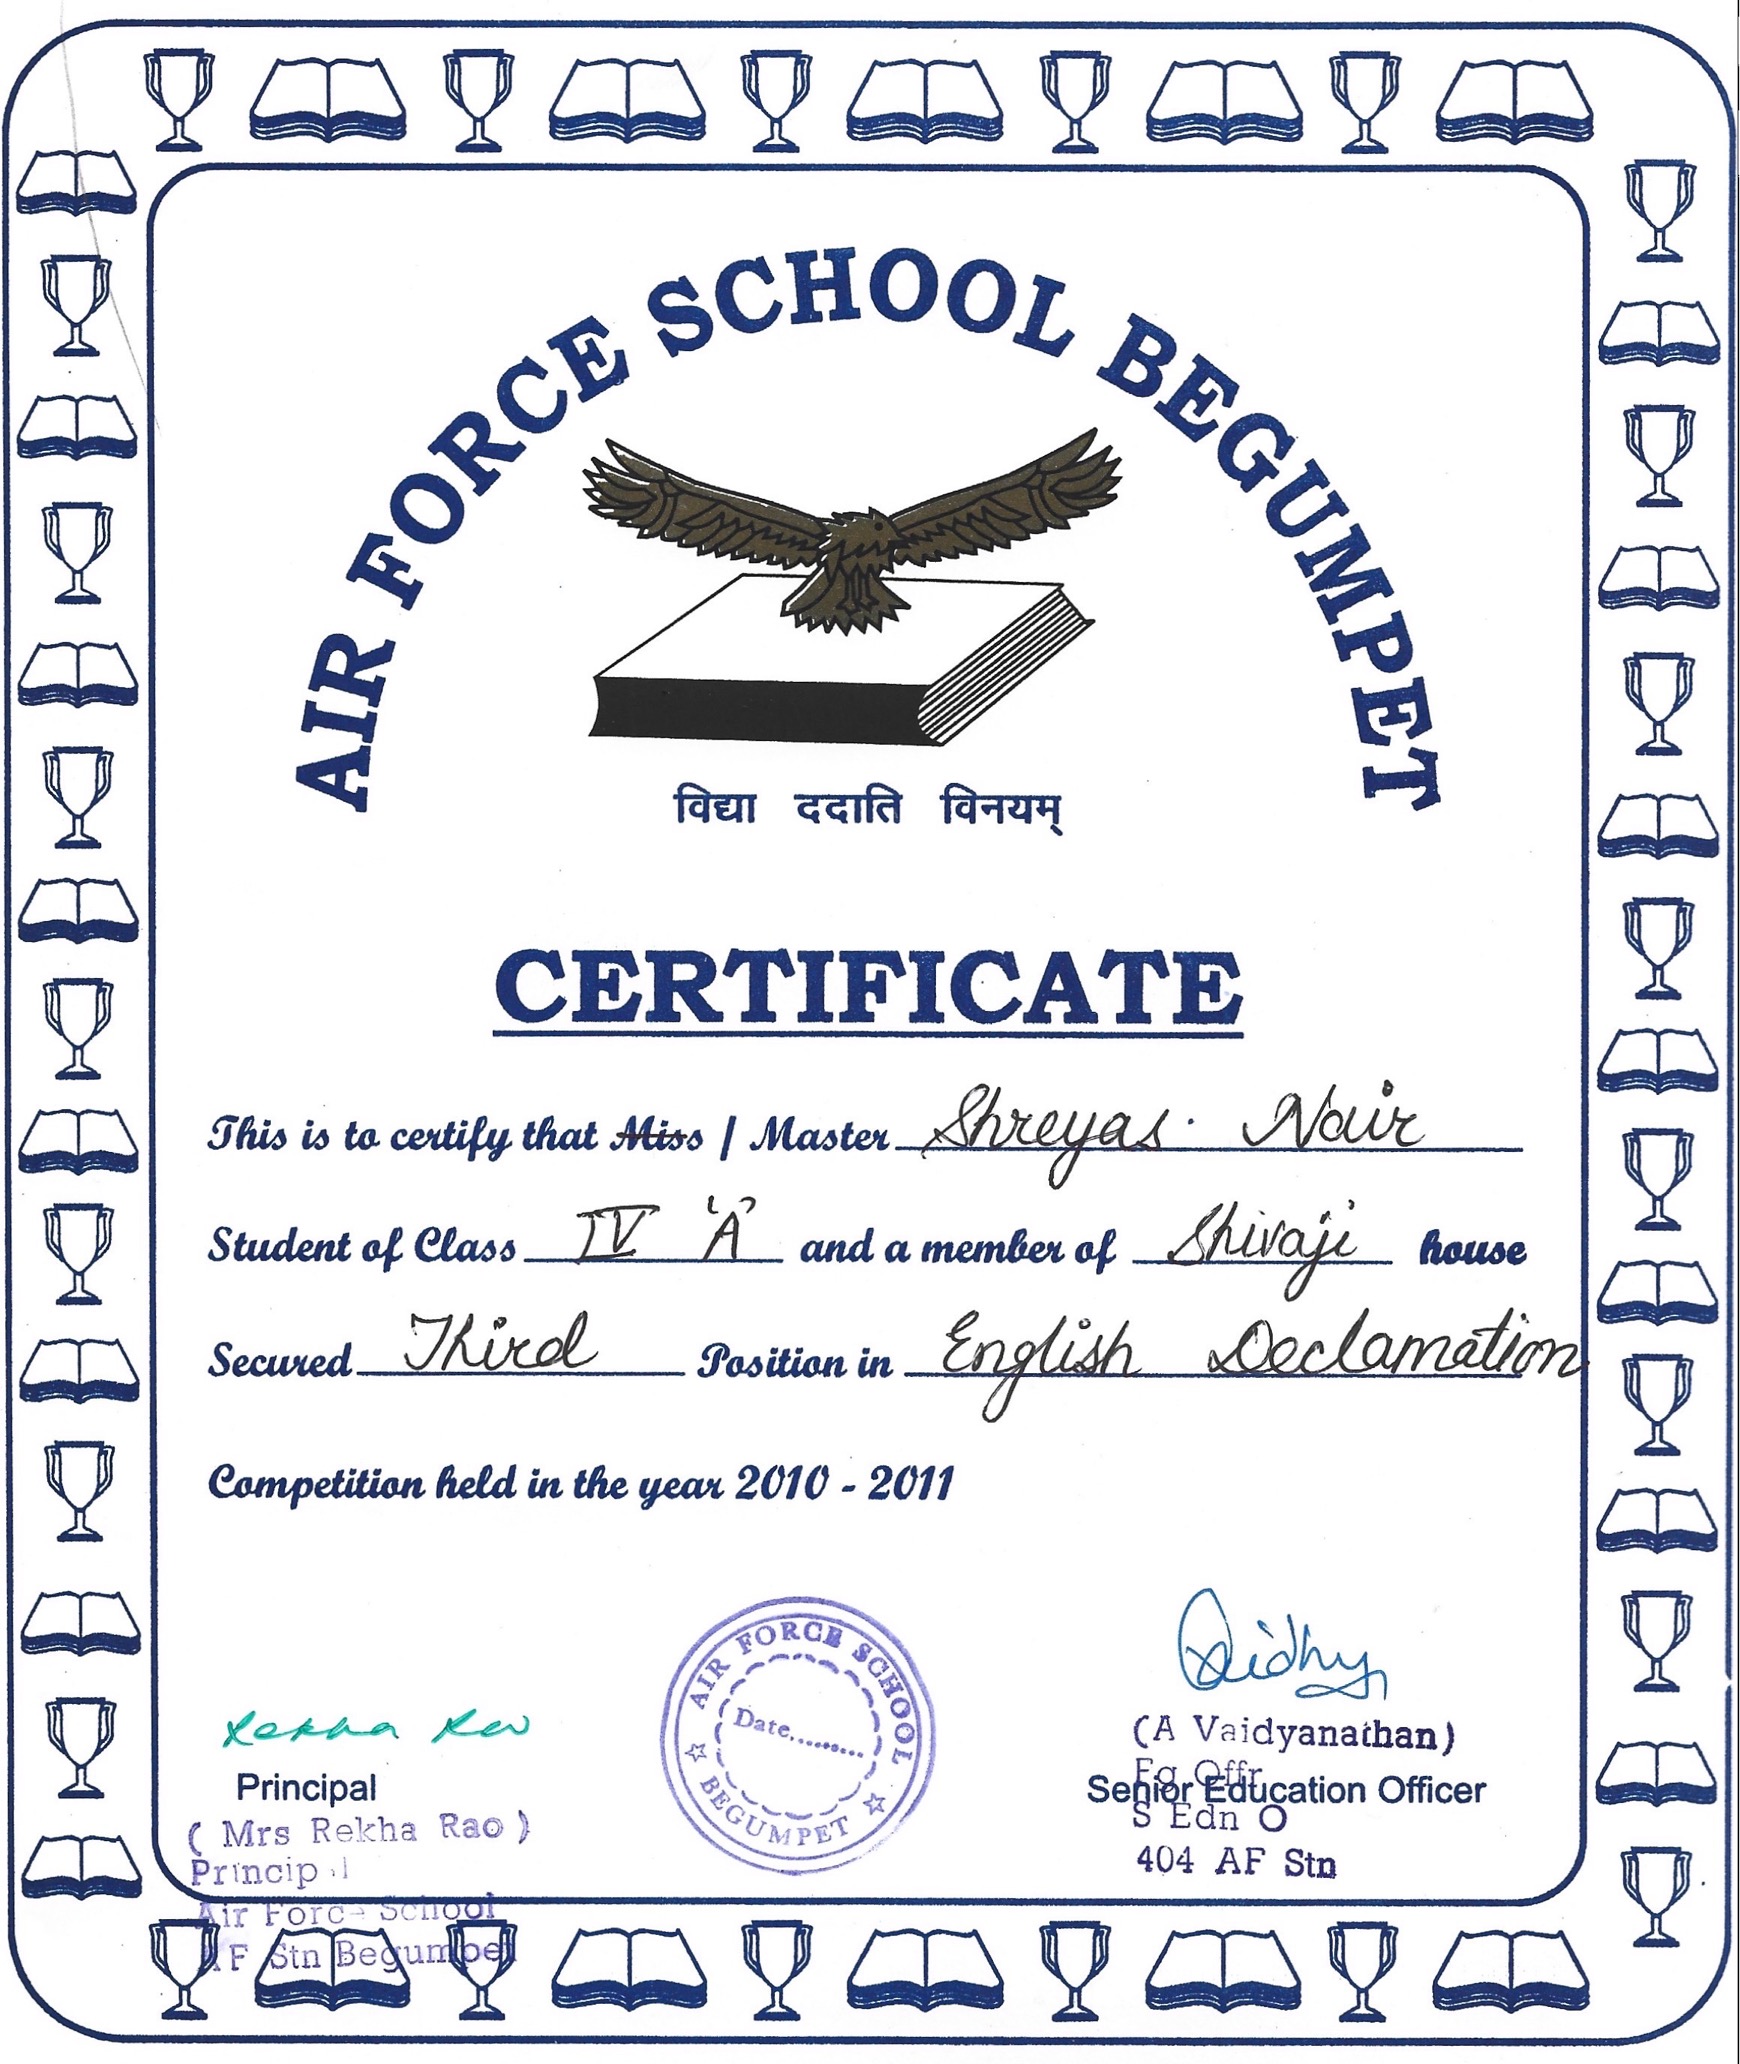 AIR FORCE SCHOOL BEGUMPET
विद्या ददाति विनयम्
CERTIFICATE
This is to certify that Miss / Master Shreyas Nair
Student of Class IV 'A' and a member of Shivaji house
Secured Third Position in English Declamation
Competition held in the year 2010 - 2011
Rekha Rao
Principal
( Mrs Rekha Rao )
Principal
Air Force School
AF Stn Begumpet
AIR FORCE SCHOOL
Date..........
BEGUMPET
(A Vaidyanathan)
Fg Offr
Senior Education Officer
S Edn O
404 AF Stn